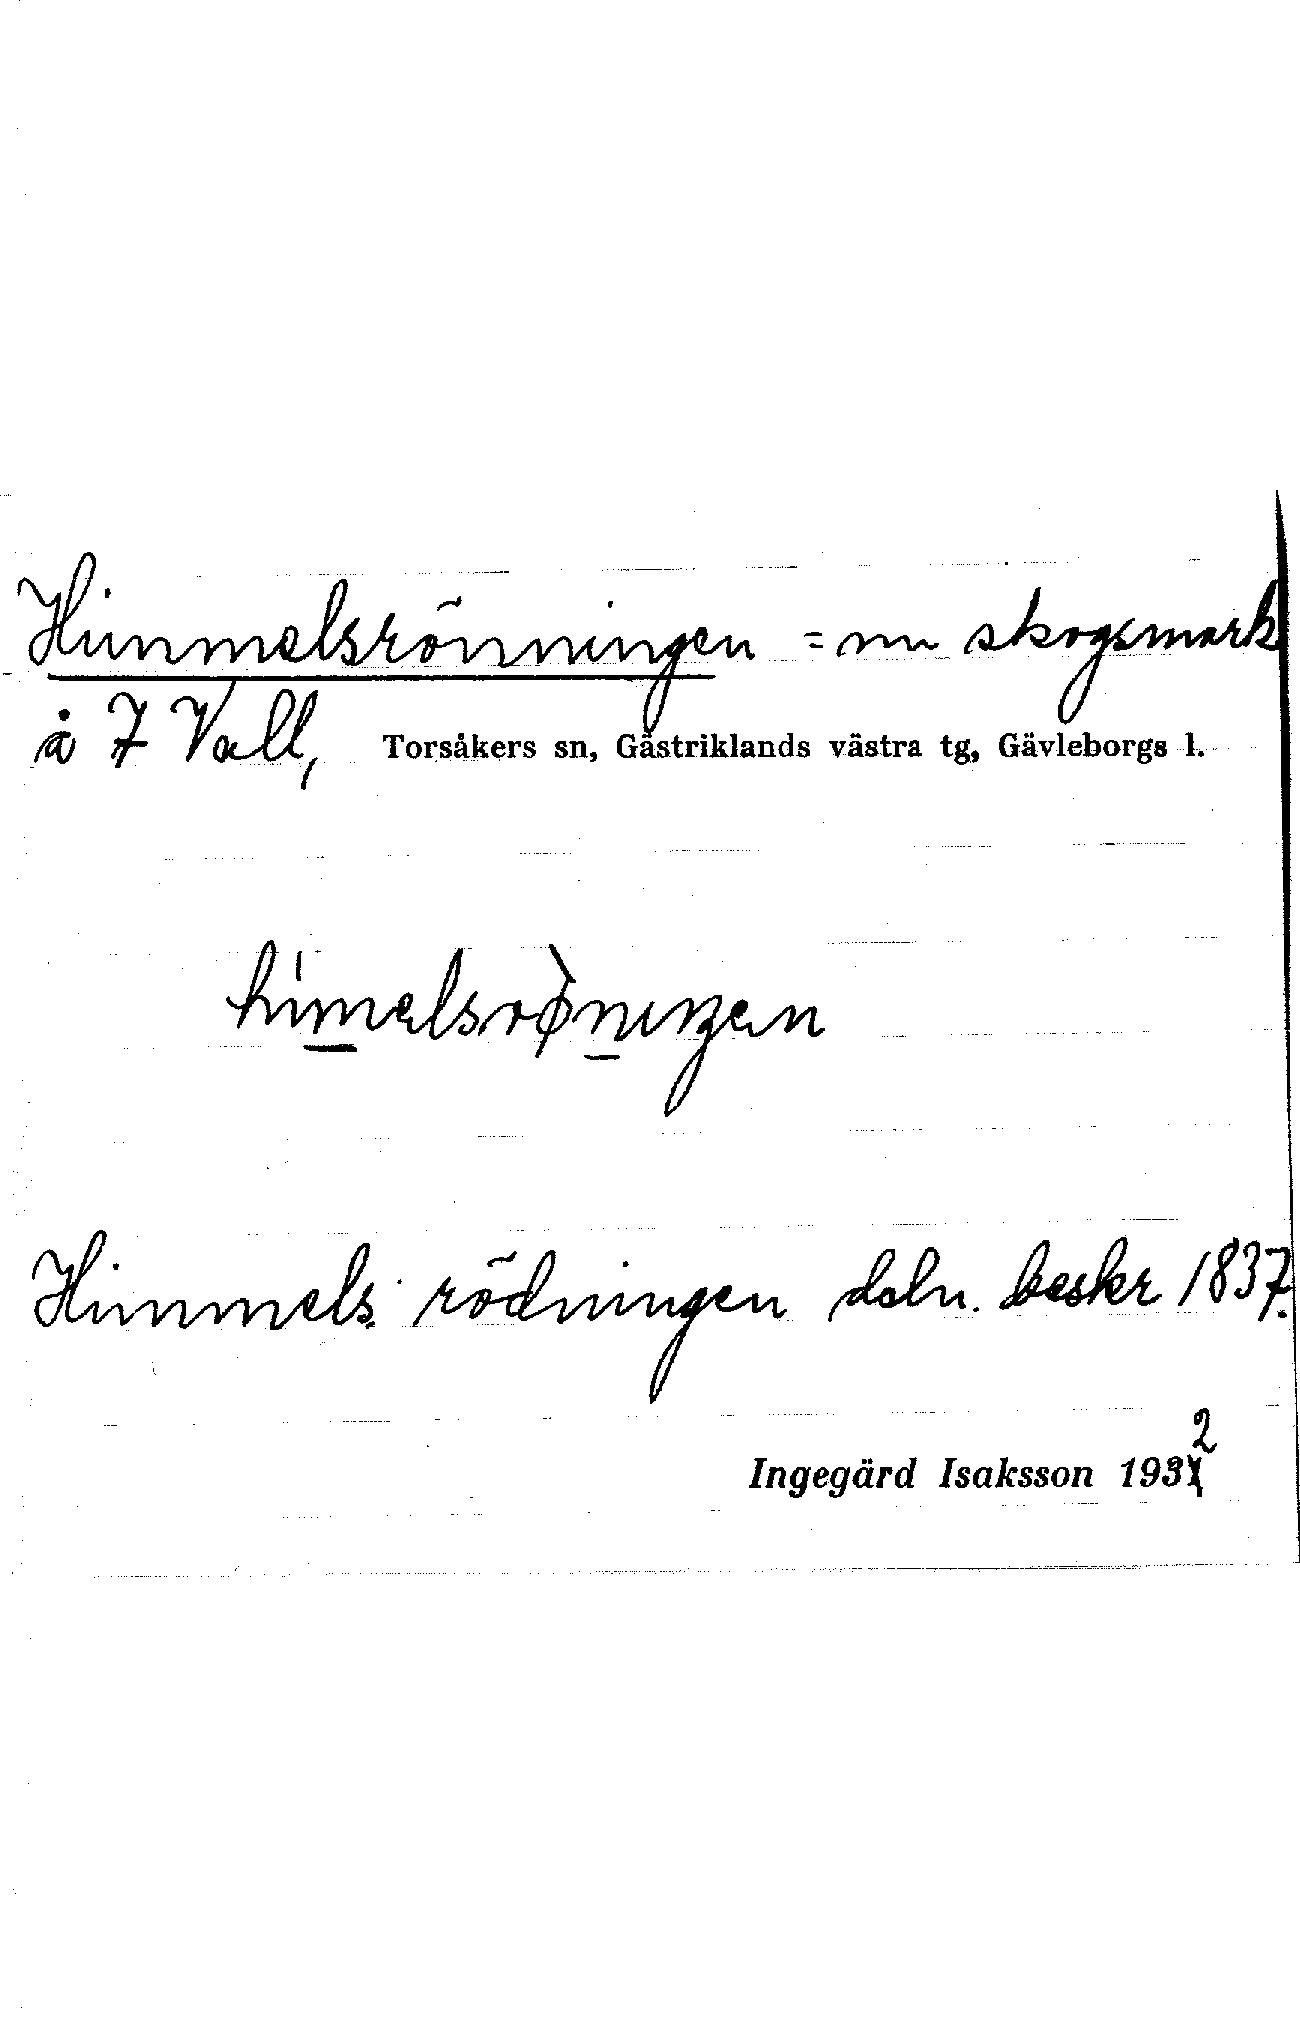 Himmelsrönningen = nu skogsmark
å 7 Vall, Torsåkers sn, Gästriklands västra tg, Gävleborgs l.
hímelsrø̀nıŋen
Himmels rödningen deln. beskr 1837.
Ingegärd Isaksson 1932